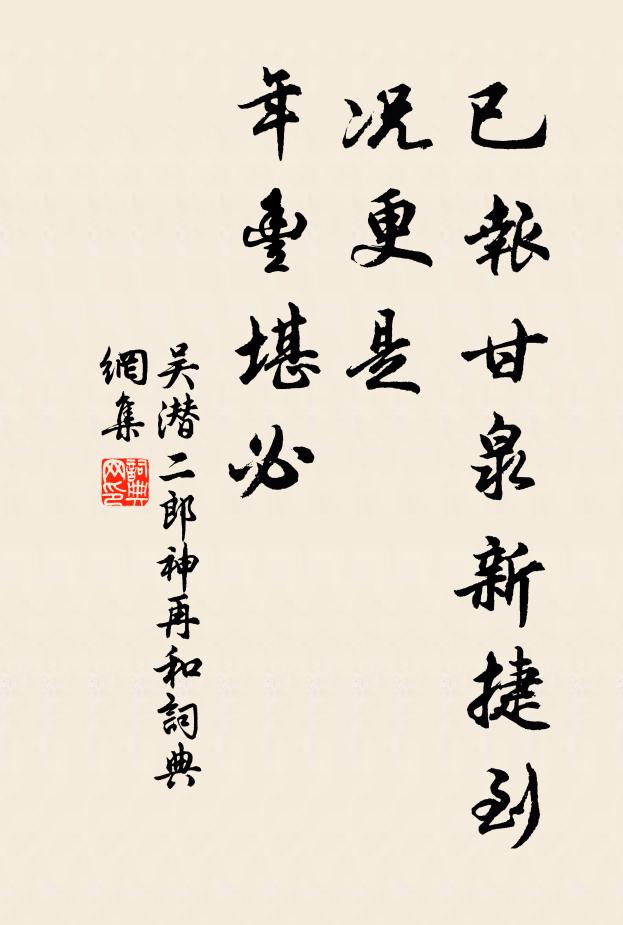 已報甘泉新捷到
況更是
年豐堪必
吴潜二郎神再和詞典
網集
詞典网印